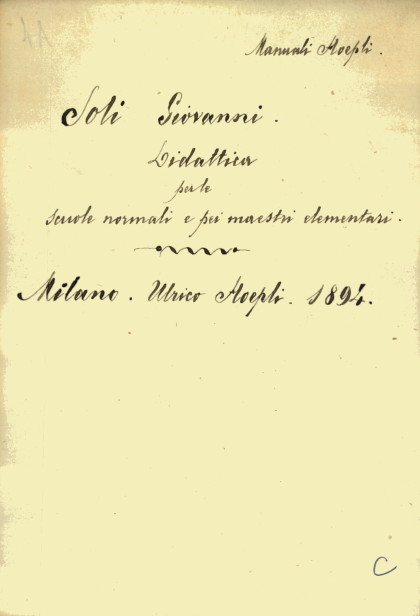 Manuali Hoepli.
Soli Giovanni.
Didattica
per le
scuole normali e pei maestri elementari.
Milano. Ulrico Hoepli. 1894.
C